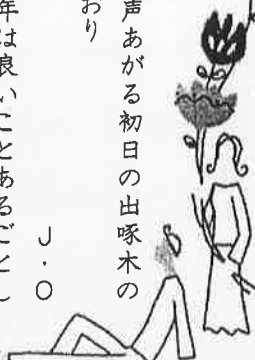 声あがる初日の出啄木の
おり
年は良いことあるごとし
J・O